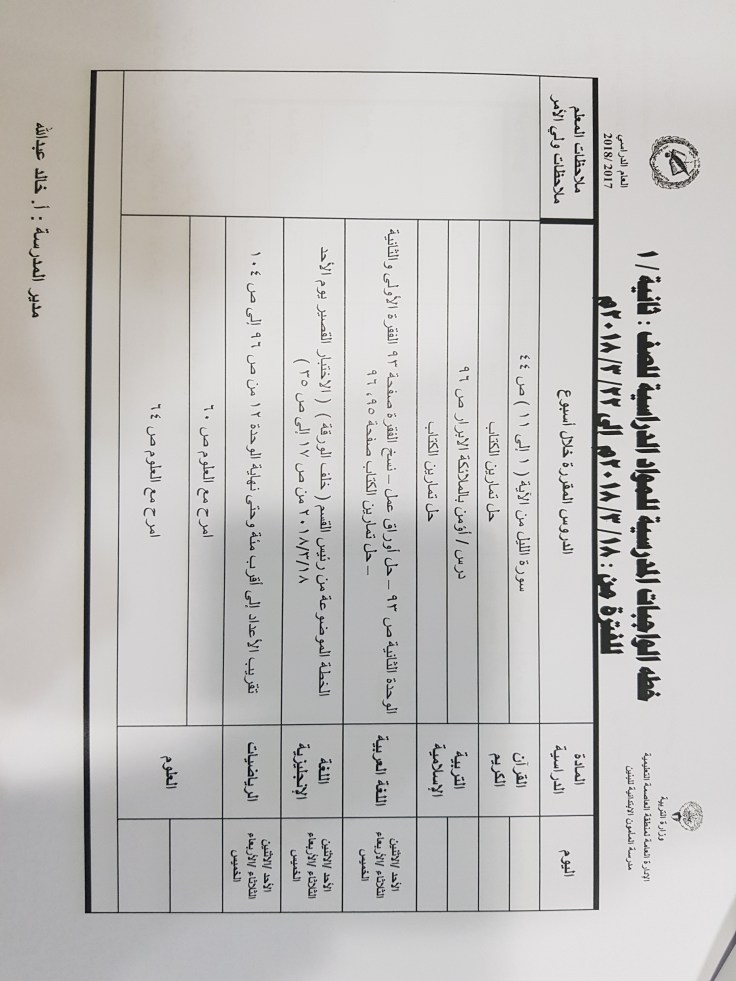 وزارة التربية
الإدارة العامة لمنطقة العاصمة التعليمية
مدرسة المأمون الابتدائية للبنين
العام الدراسي
2018/2017
خطه الواجبات المدرسية للمواد الدراسية للصف : ثانية / ١
للفترة من : ١٨ / ٣ / ٢٠١٨م إلى ٢٢ / ٣ / ٢٠١٨م
اليوم
المادة الدراسية
الدروس المقررة خلال أسبوع
ملاحظات المعلم
ملاحظات ولي الأمر
القرآن الكريم
سورة الليل من الآية ( ١ إلى ١١ ) ص ٤٤
حل تمارين الكتاب
التربية الإسلامية
درس / أؤمن بالملائكة الابرار ص ٩٦
حل تمارين الكتاب
الأحد /الاثنين
الثلاثاء /الأربعاء
الخميس
اللغة العربية
الوحدة الثانية ص ٩٣ – حل أوراق عمل – نسخ الفقرة صفحة ٩٣ الفقرة الأولى والثانية
– حل تمارين الكتاب صفحة ٩٥، ٩٦
الأحد /الاثنين
الثلاثاء /الأربعاء
الخميس
اللغة الإنجليزية
الخطة الموضوعة من رئيس القسم ( خلف الورقة ) ( الاختبار القصير يوم الأحد
٢٠١٨/٣/١٨ من ص ١٧ إلى ص ٢٥ )
الأحد /الاثنين
الثلاثاء /الأربعاء
الخميس
الرياضيات
تقريب الأعداد إلى أقرب مئة وحتى نهاية الوحدة ١٢ من ص ٩٦ إلى ص ١٠٤
العلوم
امرح مع العلوم ص ٦٠
امرح مع العلوم ص ٦٤
مدير المدرسة : أ. خالد عبدالله